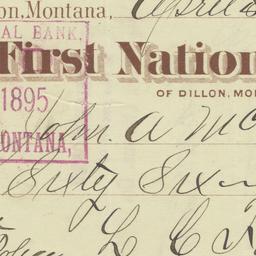 on, Montana, April
AL BANK,
First Nation
1895
OF DILLON, MO
John. A Mc
ONTANA,
Sixty Six
L C